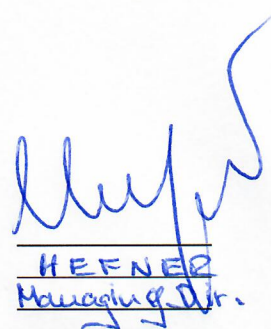 HEFNER
Managing Dir.